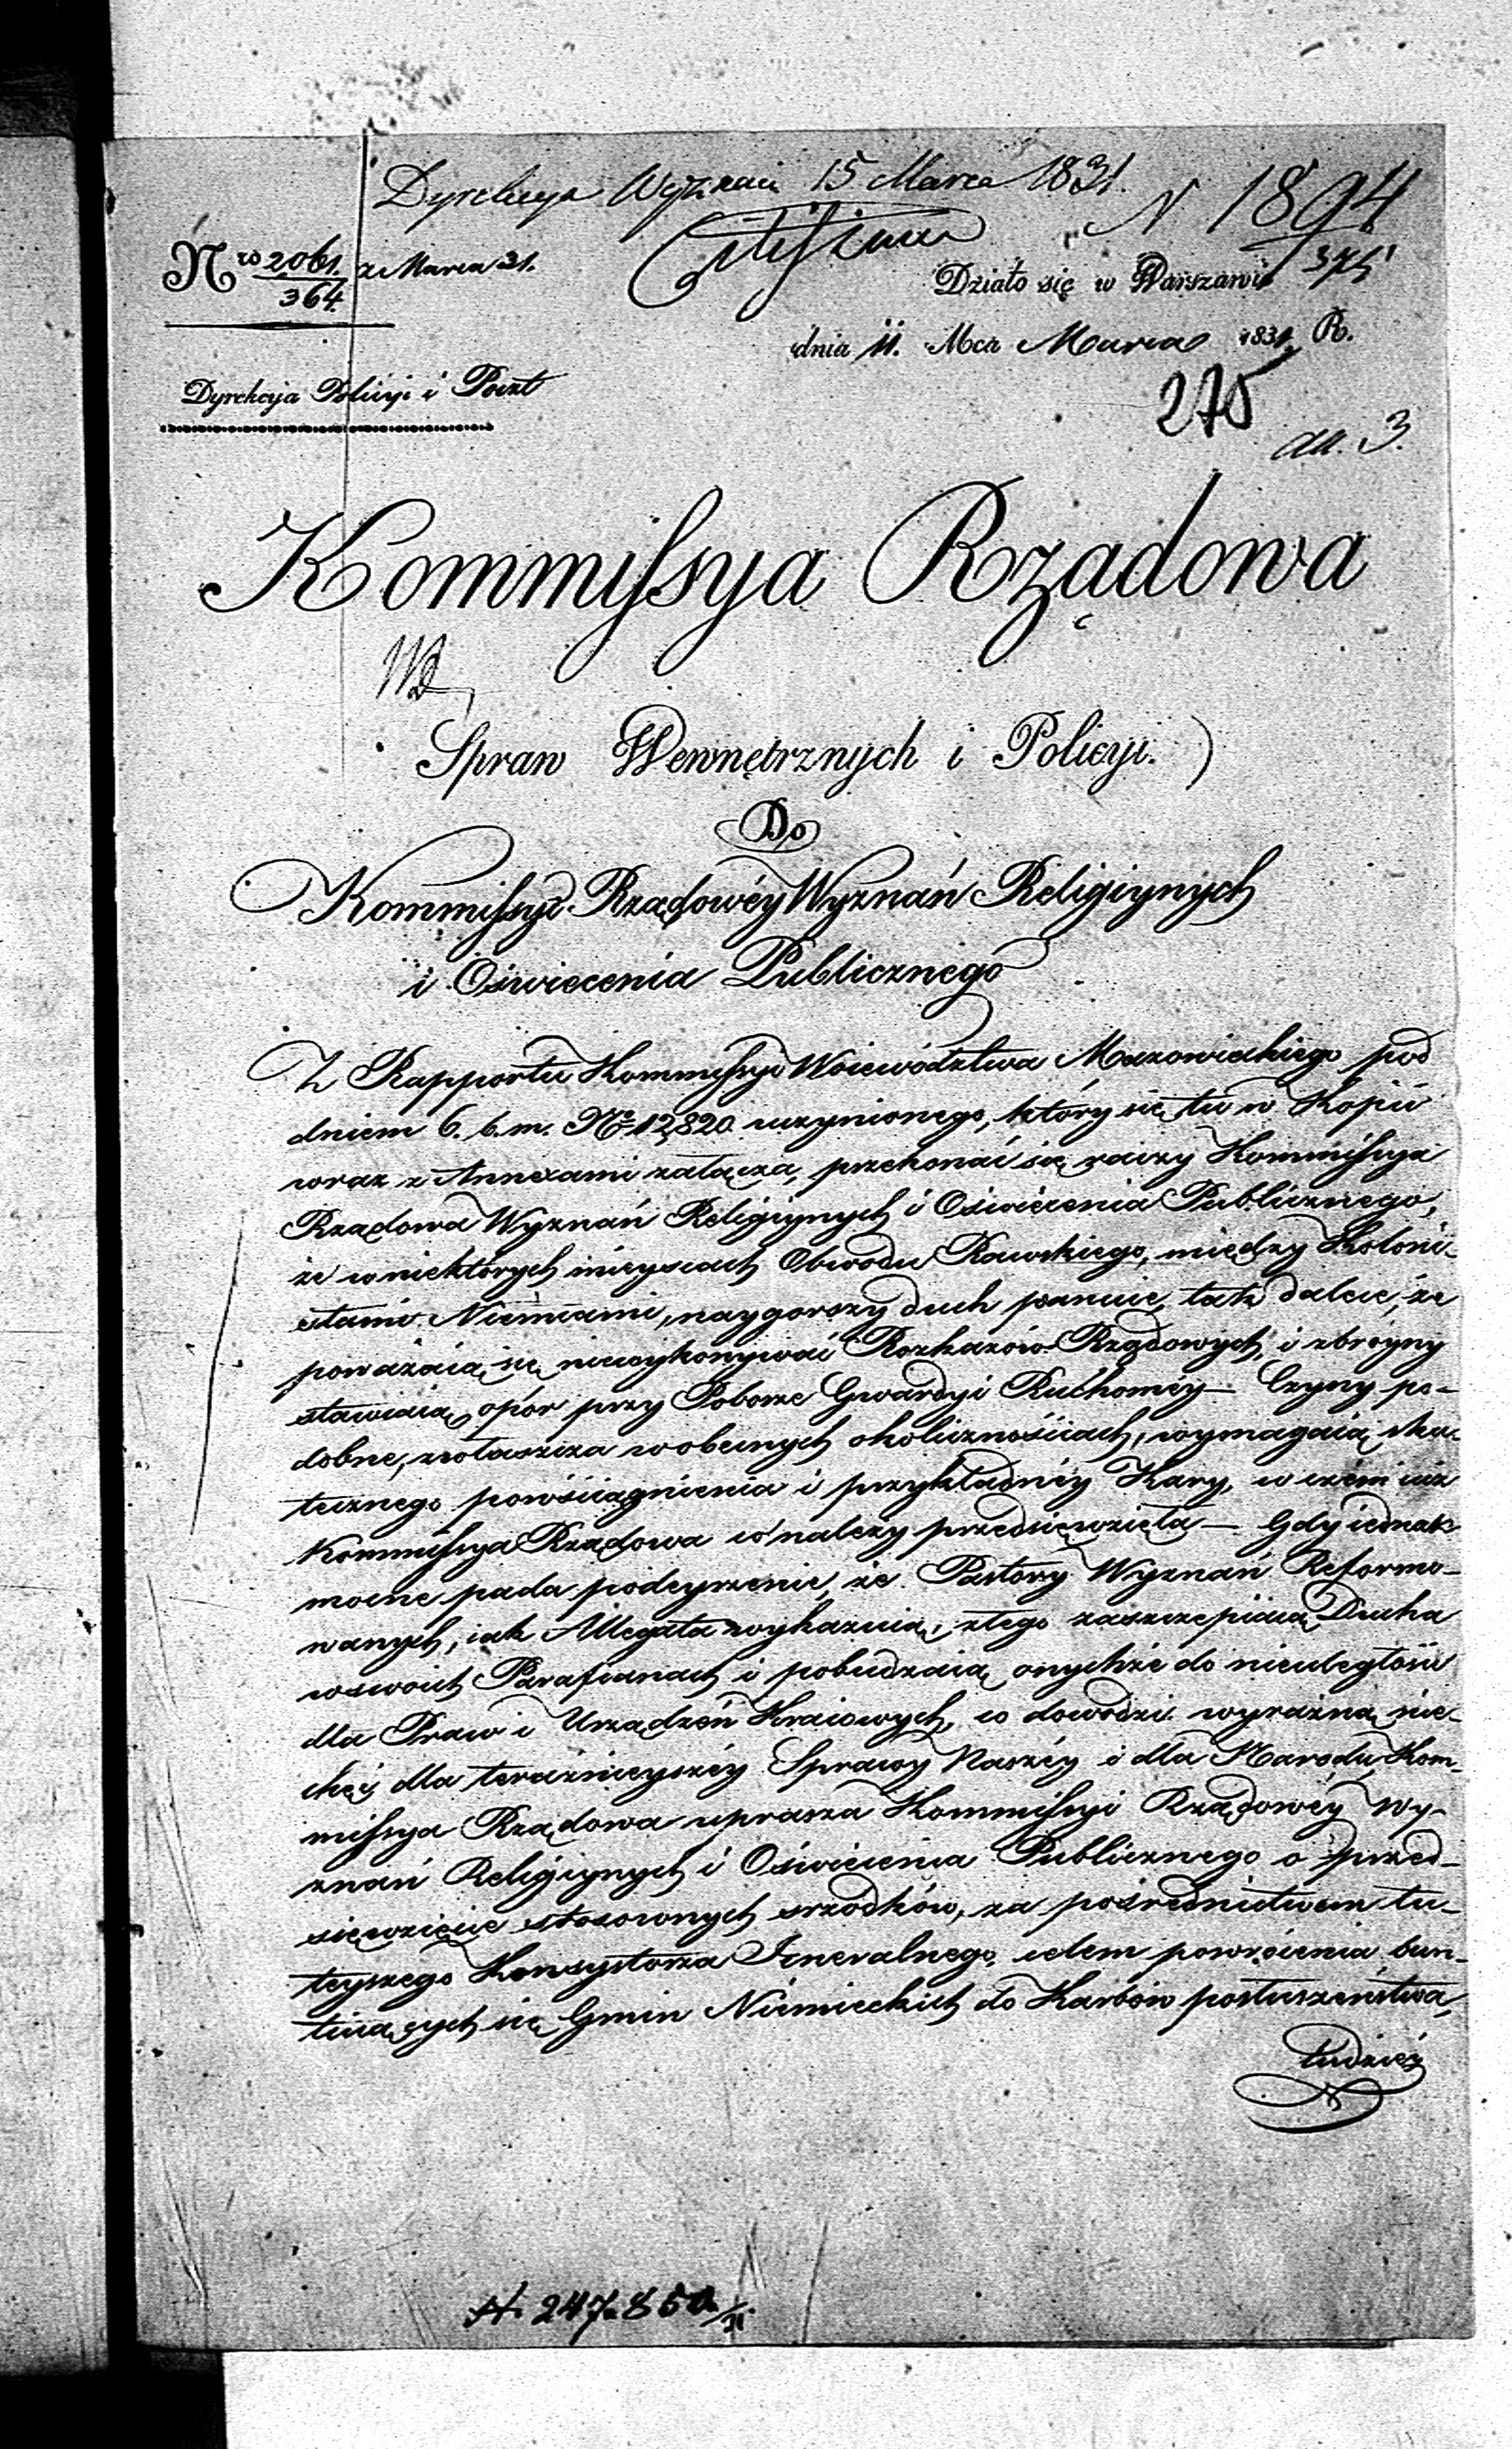 Dyrekcya Wyznań 15 Marca 1831.
N 1894
375
Nro 2061. z Marca 31.
364.
Działo się w Warszawie
dnia 11. Mca Marca 1831. R.
Dyrekcja Policyi i Poczt
275
an. 3.
Kommissya Rządowa
Spraw Wewnętrznych i Policyi.
Do
Kommissyi Rządowéy Wyznań Religiynych
i Oświecenia Publicznego
Z Rapportu Kommissyi Woiewództwa Mazowieckiego pod
dniem 6. b. m. No 12,820 uczynionego, który się tu w Kopii
wraz z Annexami załącza, przekonać się raczy Kommissya
Rządowa Wyznań Religiynych i Oświecenia Publicznego,
że w niektórych mieyscach Obwodu Rawskiego, między Koloni-
stami Niemcami, naygorszy duch panuie, tak dalece, że
poważaią się niewykonywać Rozkazów Rządowych, i zbroyny
stawiaią opór przy Poborze Gwardyi Ruchoméy — Czyny po-
dobne, zwłaszcza w obecnych okolicznościach, wymagaią sku-
tecznego powściągnienia i przykładnéy Kary, w czém iuż
Kommissya Rządowa co należy przedsięwzięła — Gdy iednak
mocne pada podeyrzenie, że Pastory Wyznań Reformo-
wanych, iak Allegata wykazuią, złego zaszczepiaią Ducha
w swoich Parafianach i pobudzaią onychże do nieuległości
dla Praw i Urządzeń Kraiowych, co dowodzi wyraźną nie-
chęć dla teraźnieyszéy Sprawy Naszéy i dla Narodu, Kom-
missya Rządowa uprasza Kommissyi Rządowéy Wy-
znań Religiynych i Oświecenia Publicznego o przed-
sięwzięcie stosownych srzodków, za pośrednictwem tu-
teyszego Konsystorza Jeneralnego, celem powrócenia bun-
tuiących się Gmin Niemieckich do Karbów posłuszeństwa,
tudzież
247.850